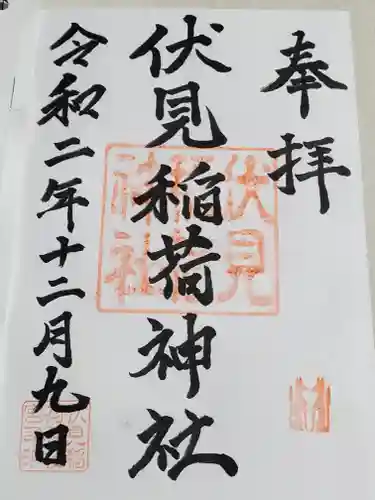 奉拝
伏見稲荷神社
令和二年十二月九日
伏見
稲荷
神社